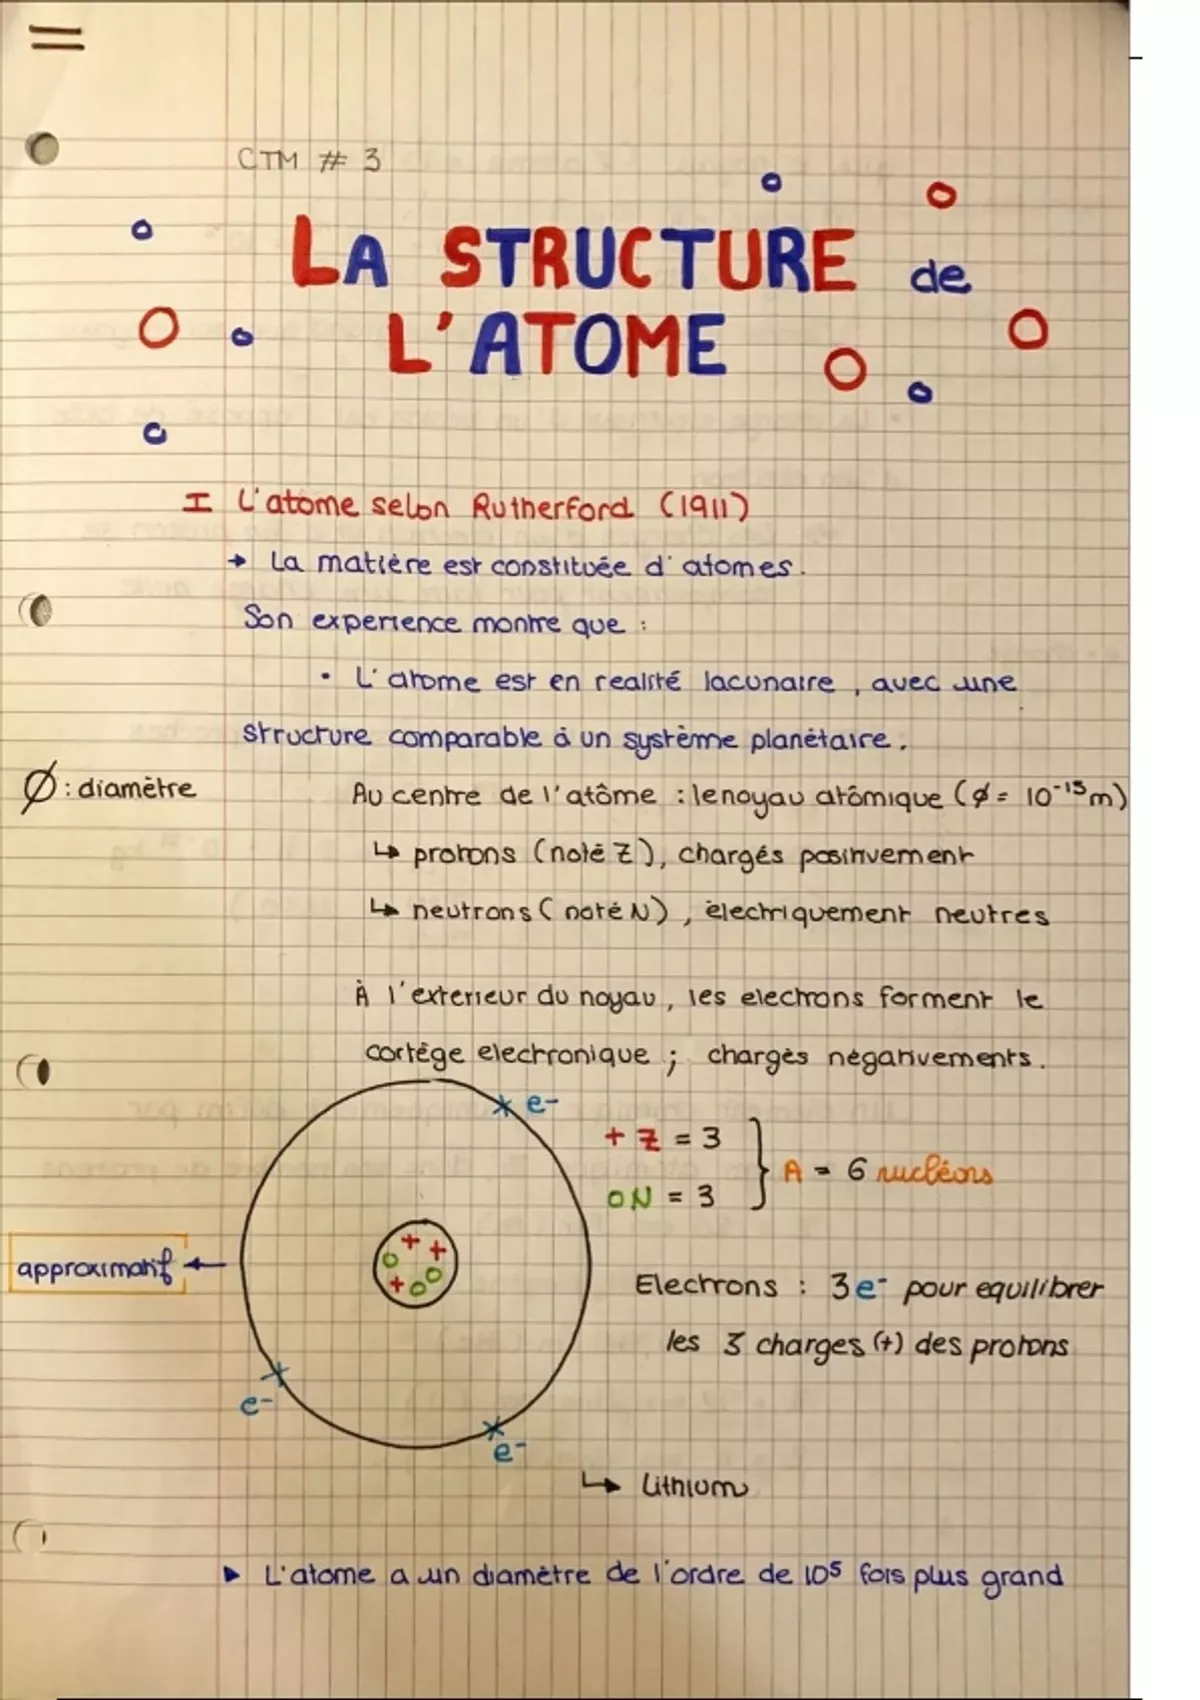 CTM # 3
LA STRUCTURE de
L'ATOME
I L'atome selon Rutherford (1911)
→ La matière est constituée d'atomes.
Son experience montre que :
• L'atome est en realité lacunaire, avec une
structure comparable à un système planétaire.
Ø : diamètre
Au centre de l'atôme : le noyau atômique (ø = 10⁻¹⁵m)
↳ protons (noté Z), chargés positivement
↳ neutrons (noté N), électriquement neutres
À l'exterieur du noyau, les electrons forment le
cortège electronique ; chargés négativements.
e-
+ Z = 3
O N = 3
} A = 6 nucléons
approximatif ←
Electrons : 3e⁻ pour equilibrer
les 3 charges (+) des protons
e-
e-
↳ Lithium
▶ L'atome a un diamètre de l'ordre de 10⁵ fois plus grand